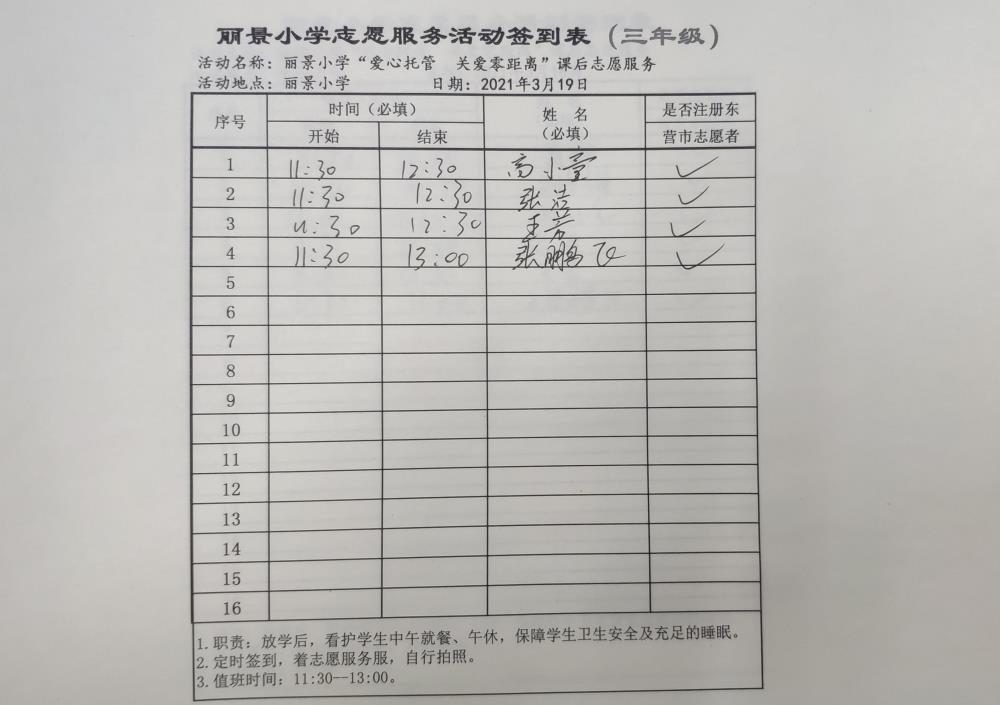 丽景小学志愿服务活动签到表（三年级）
活动名称：丽景小学“爱心托管 关爱零距离”课后志愿服务
活动地点：丽景小学 日期：2021年3月19日
序号 时间（必填） 姓 名（必填） 是否注册东营市志愿者
开始 结束
1 11:30 12:30 高小莹 ✓
2 11:30 12:30 张洁 ✓
3 11:30 12:30 王芳 ✓
4 11:30 13:00 张鹏飞 ✓
5
6
7
8
9
10
11
12
13
14
15
16
1.职责：放学后，看护学生中午就餐、午休，保障学生卫生安全及充足的睡眠。
2.定时签到，着志愿服务服，自行拍照。
3.值班时间：11:30--13:00。